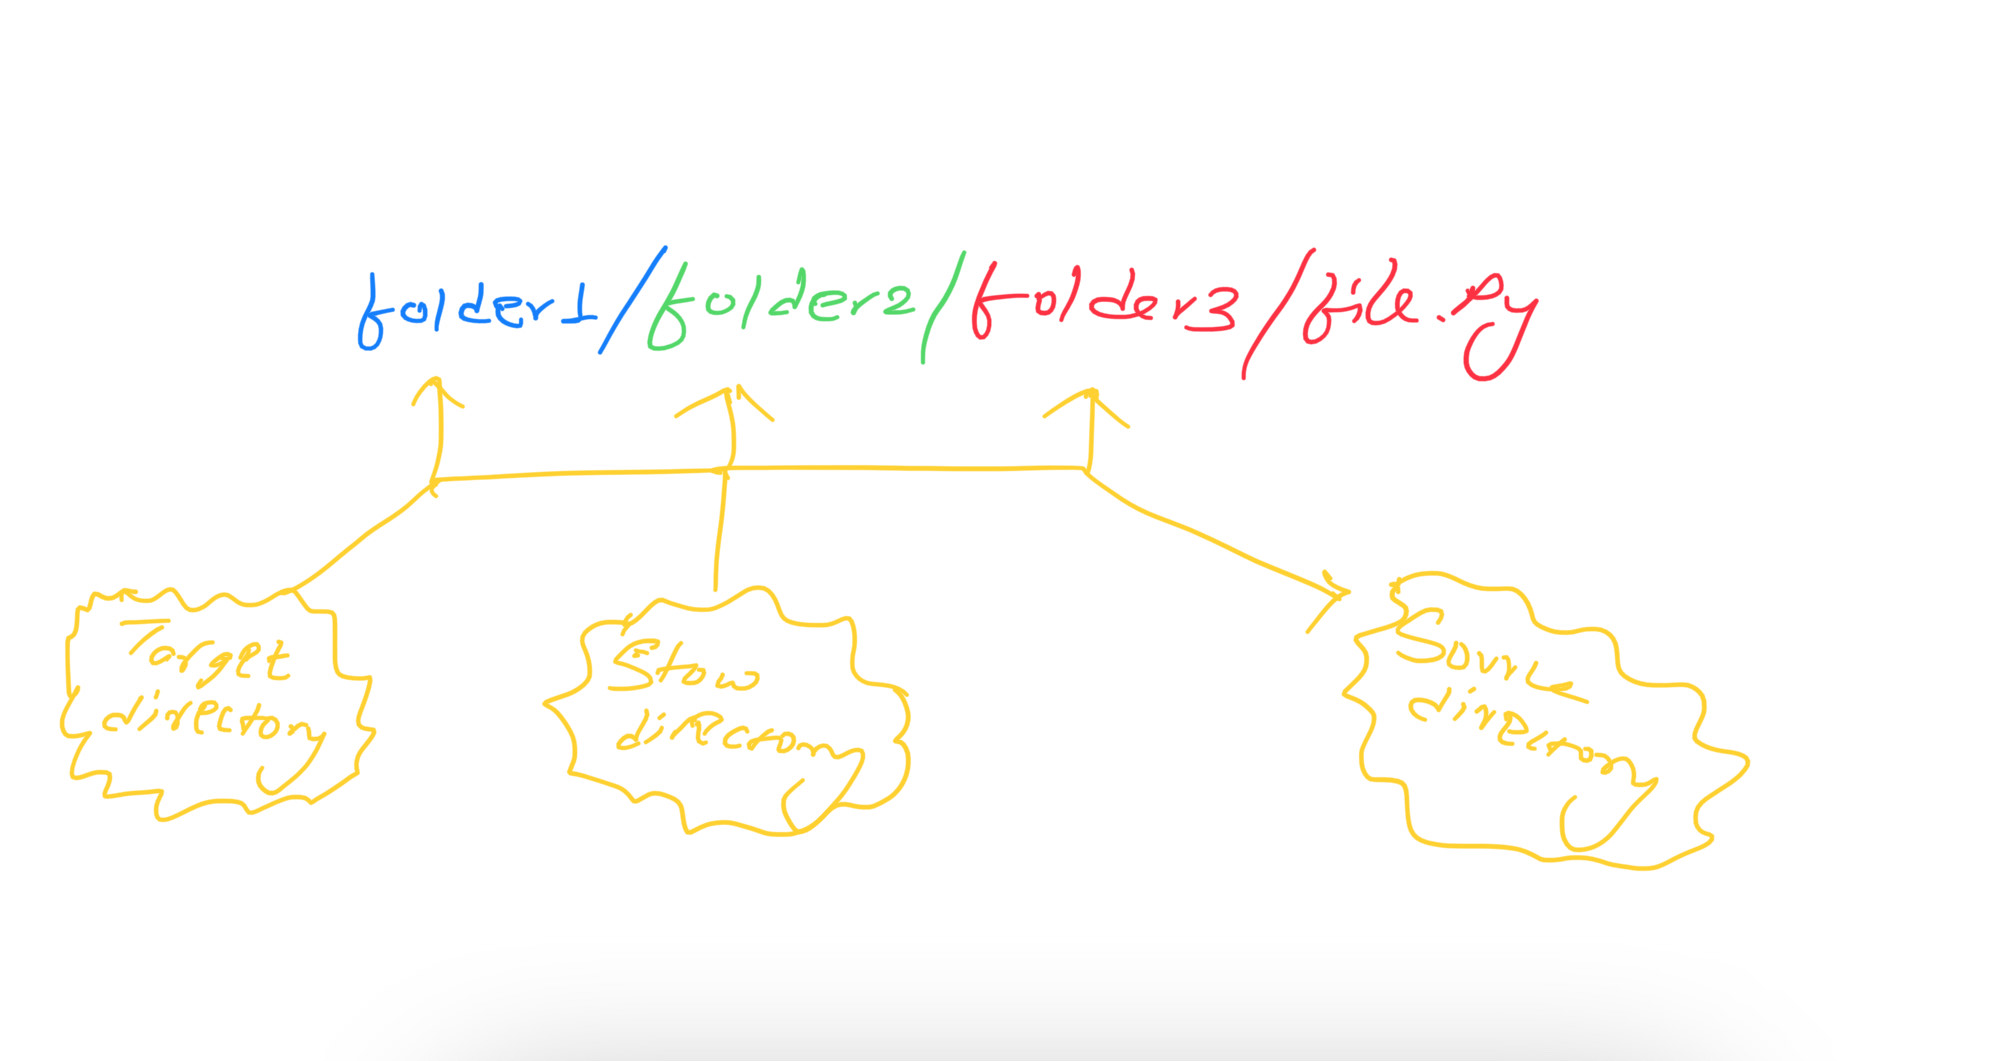 folder1/folder2/folder3/file.py
Target
directory
Stow
directory
Source
directory